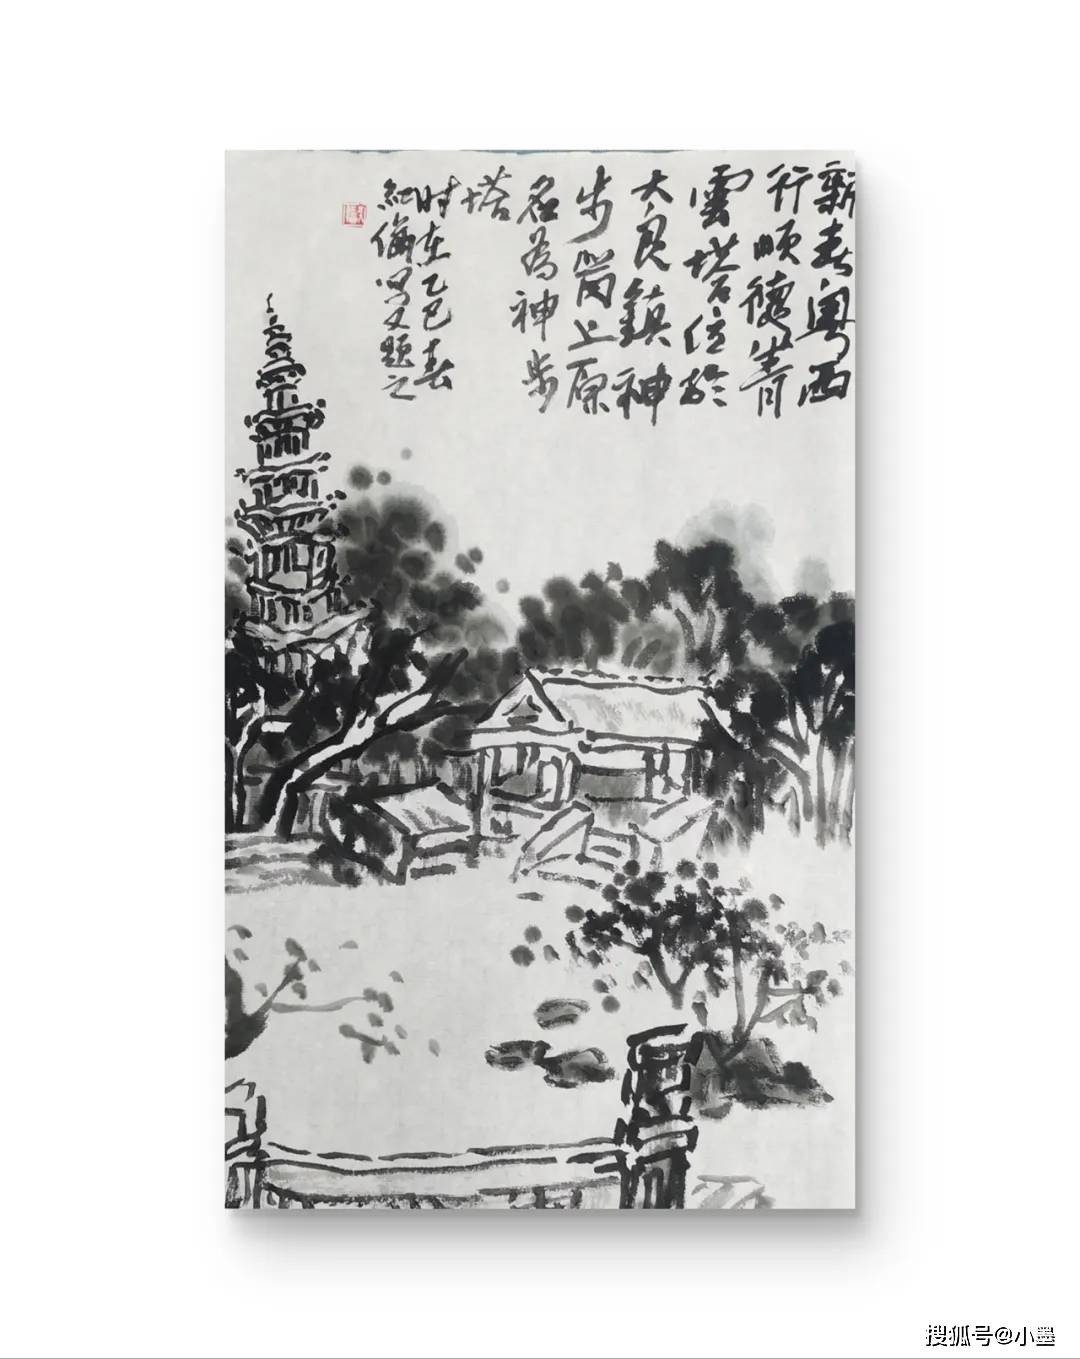 新春粤西
行顺德青
雲塔位於
大良鎮神
步崗上原
名為神步
塔
时在乙巳春
紀倫写又题之
搜狐号@小墨